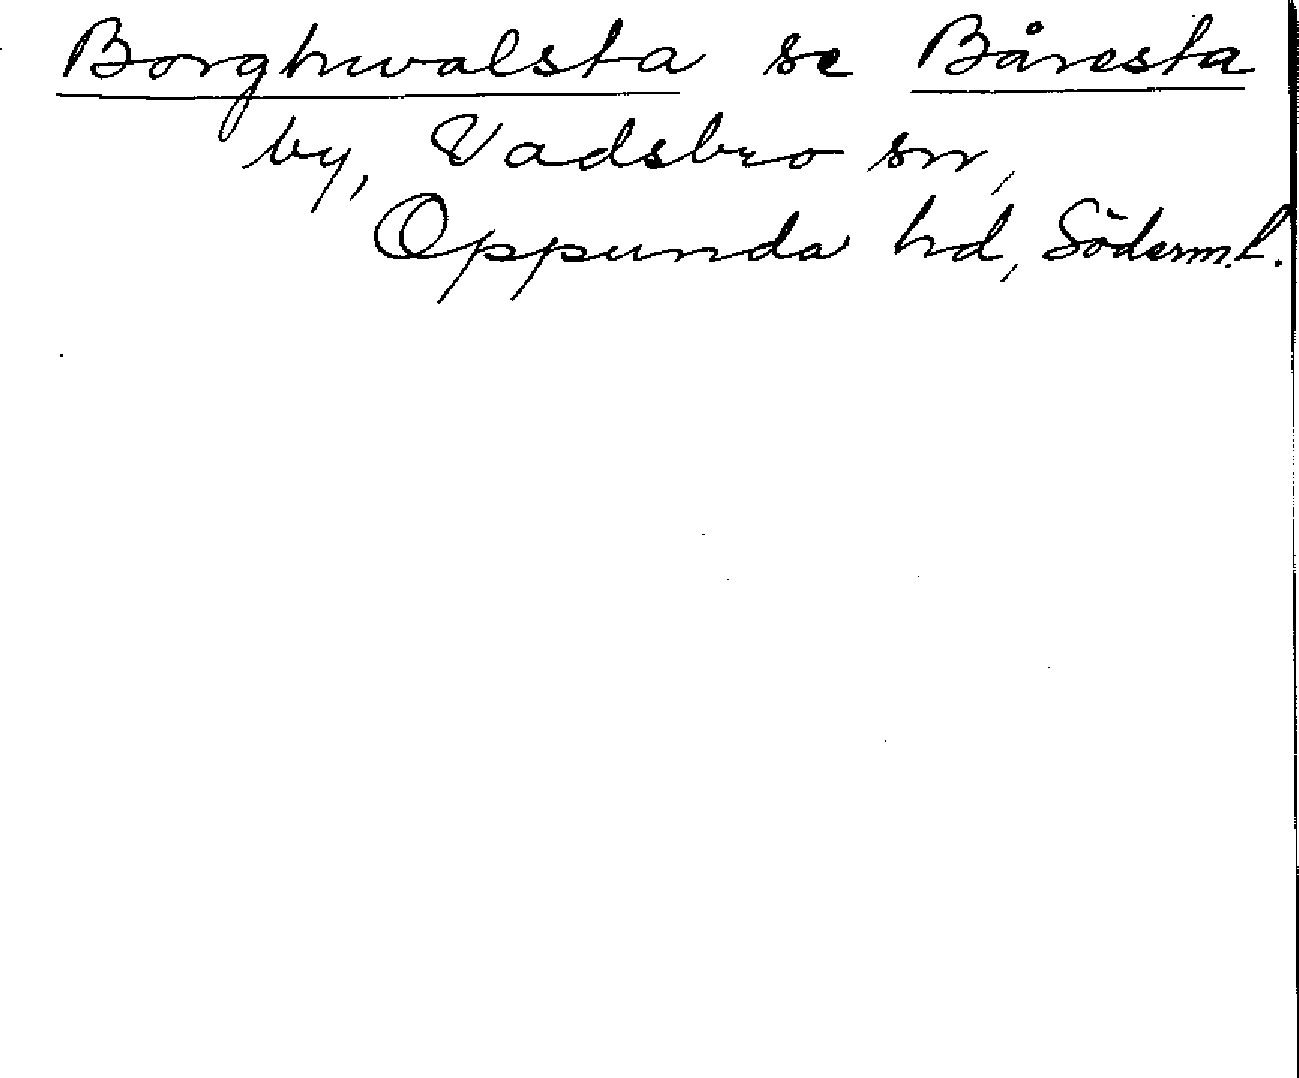 Borghwalsta se Båresta
by, Vadsbro sn,
Oppunda hd, Söderm.l.